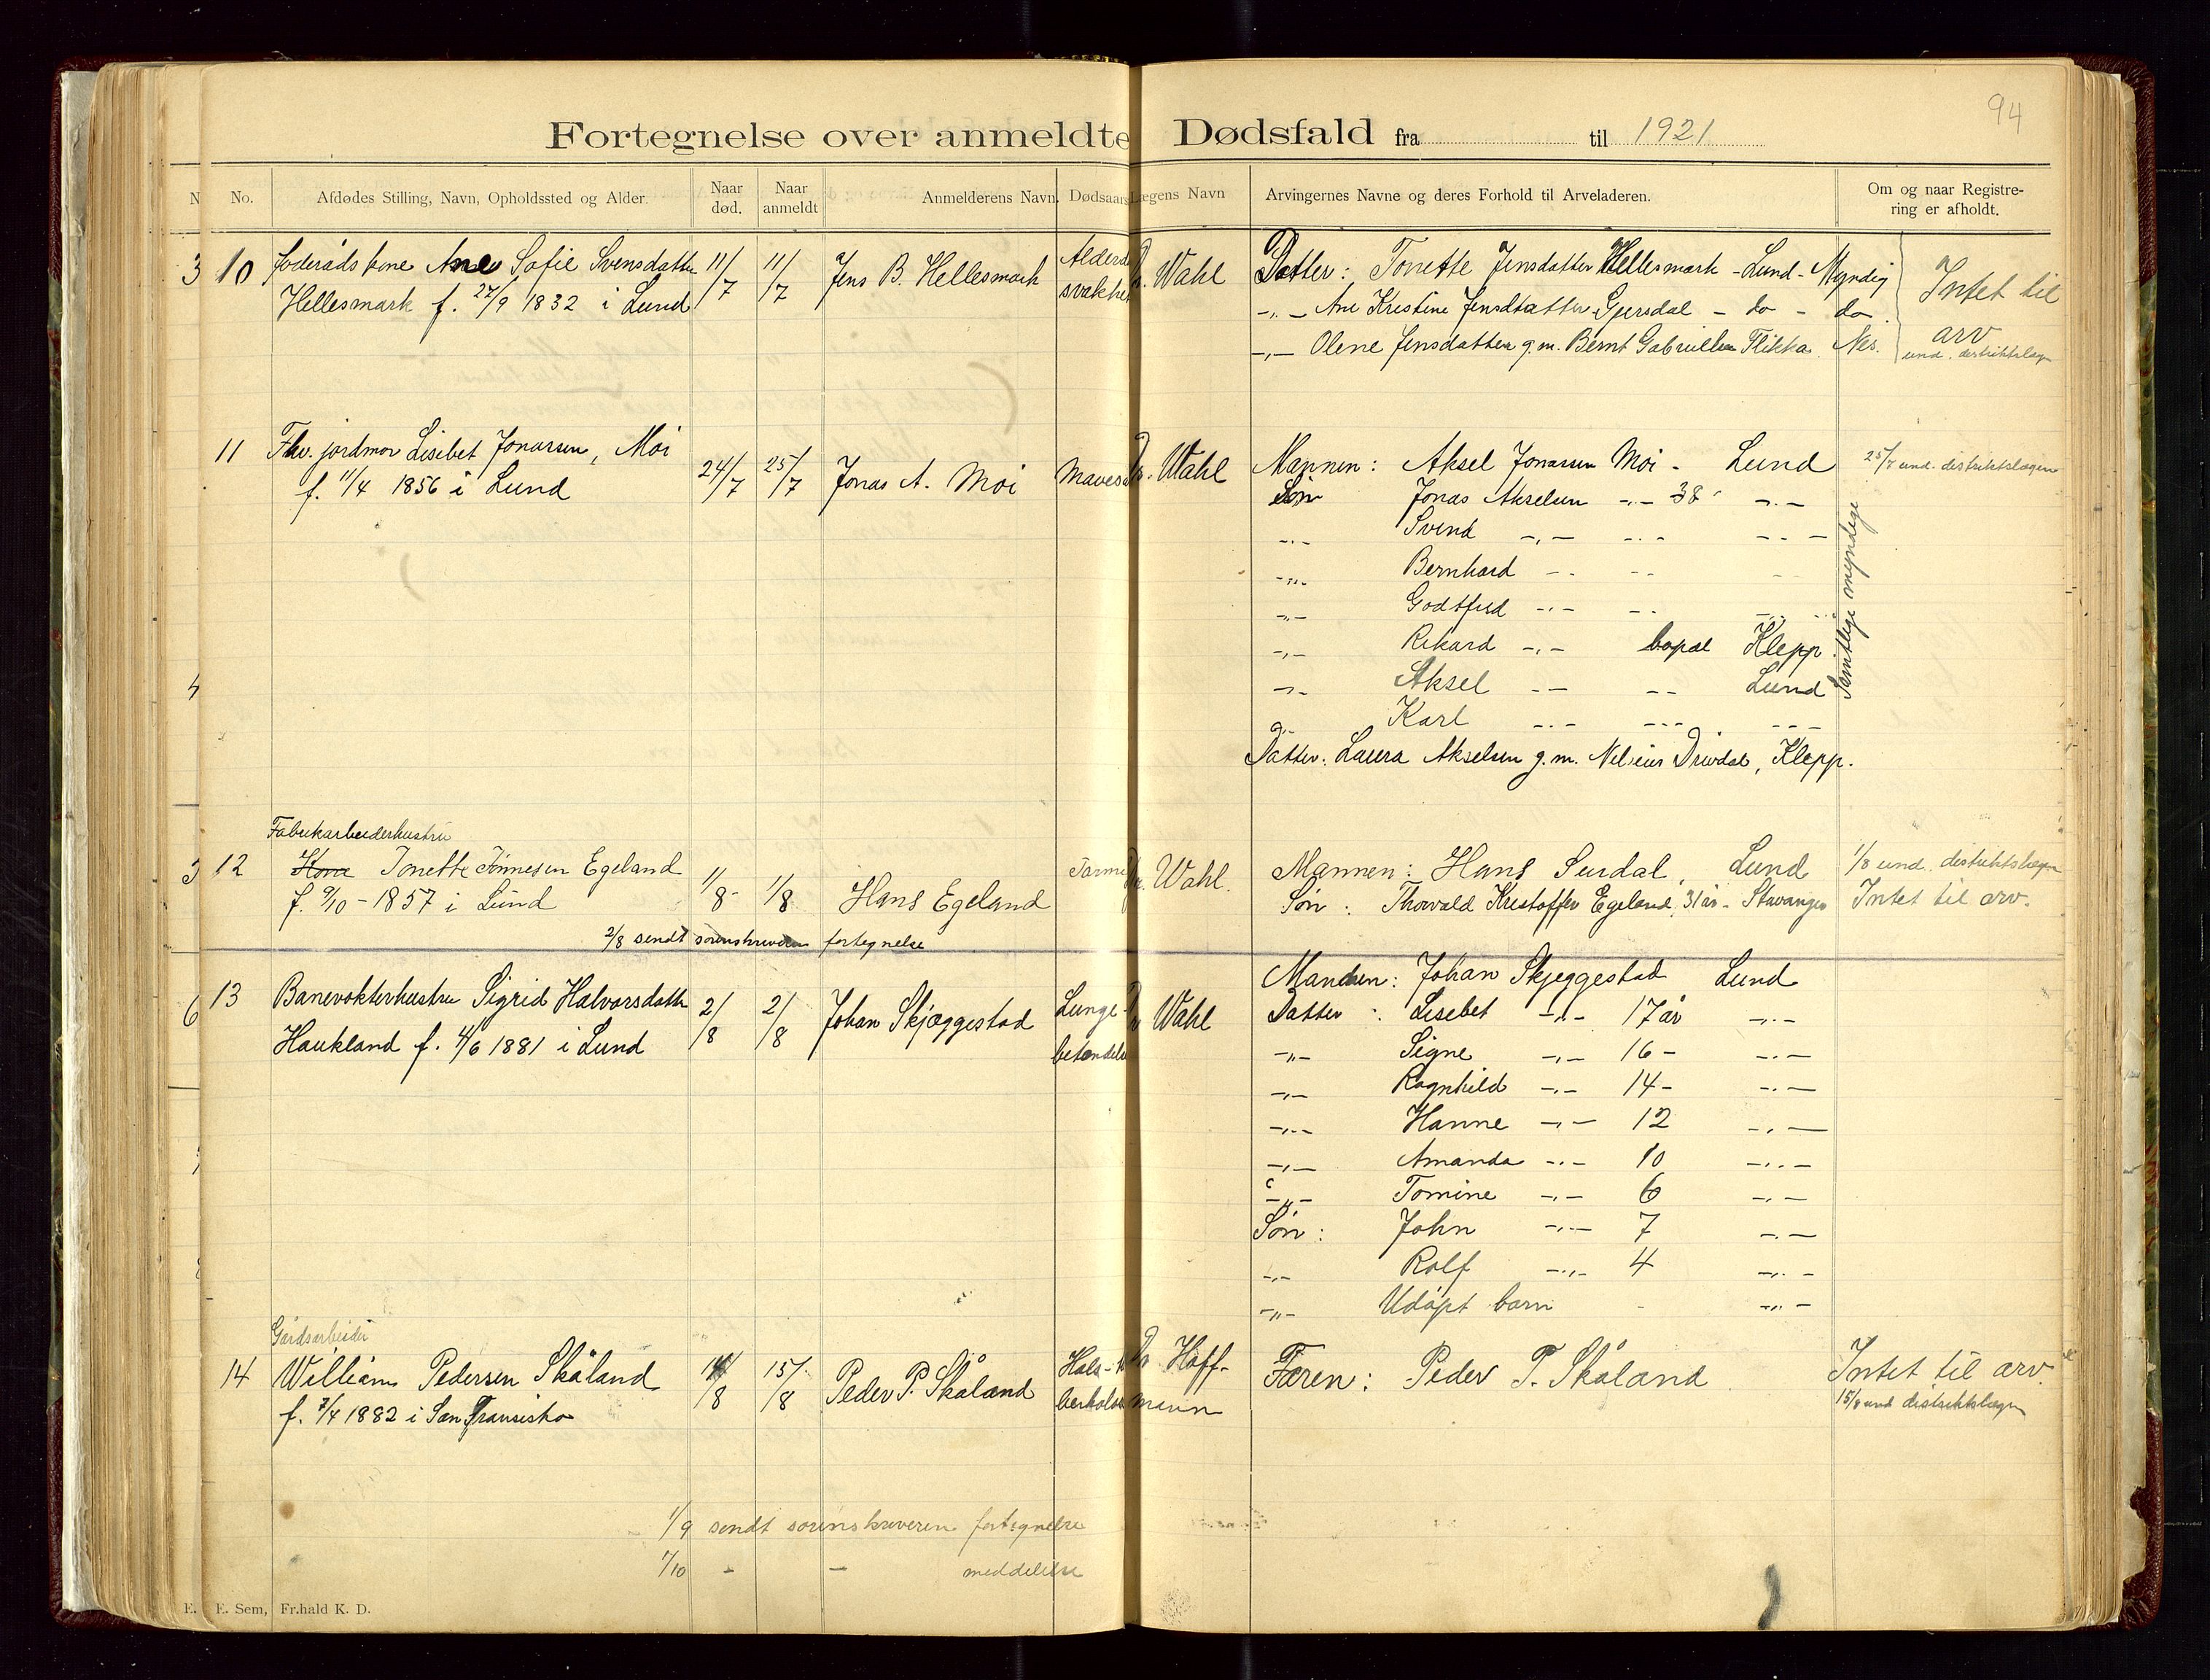 94
Fortegnelse over anmeldte Dødsfald fra til 1921
No. Afdødes Stilling, Navn, Opholdssted og Alder. Naar død. Naar anmeldt Anmelderens Navn. Dødsaars Lægens Navn Arvingernes Navne og deres Forhold til Arveladeren. Om og naar Registrering er afholdt.
10 Føderåds kone Ane Sofie Svensdatter 11/7 11/7 Jens B. Hellesmark Alderd Wahl Datter: Tonette Jensdatter Hellesmark - Lund - Myndig Intet til
Hellesmark f. 27/9 1832 i Lund svakhe -"- Ane Kristine Jensdtatter Gyersdal - do - do
-"- Olene Jensdatter g.m. Bernt Gabrielsen Flikka Nes. arv
und. distriktslægen
11 Fhv. jordmor Lisebet Jonassen, Moi 24/7 25/7 Jonas A. Moi Maves Wahl Mannen: Aksel Jonassen Moi - Lund 25/7 und. distriktslægen
f. 11/4 1856 i Lund Søn Jonas Akselsen -"- 38 -"-
-"- Svend -"- -"- -"-
-"- Bernhard -"- -"- -"-
-"- Godtfred -"- -"- -"-
-"- Rikard -"- bopæl Klepp
-"- Aksel -"- -"- Lund
-"- Karl -"- -"- -"-
Samtlige myndige
Datter: Laura Akselsen g.m. Nelius Drivdal, Klepp.
Fabrikarbeiderhustru
12 Kone Tonette Tønnesen Egeland 1/8 1/8 Hans Egeland Tarm Wahl. Mannen: Hans Surdal, Lund 1/8 und. distriktslægen
f. 9/10 - 1857 i Lund Søn: Thorvald Kristoffer Egeland, 31 år - Stavanger Intet til arv.
2/8 sendt sorenskriveren fortegnelse
13 Banevokterhustru Sigrid Halvorsdatter 2/8 2/8 Johan Skjæggestad Lunge Wahl Manden: Johan Skjeggestad Lund
Haukland f. 4/6 1881 i Lund betændels Datter: Lisebet -"- 17 år -"-
-"- Signe -"- 16 - -"-
-"- Ragnhild -"- 14 - -"-
-"- Hanne -"- 12 -"-
-"- Amanda -"- 10 -"-
-"- Tomine -"- 6 -"-
Søn: John -"- 7 -"-
-"- Rolf -"- 4 -"-
-"- Udøpt barn - -"-
Gårdsarbeider
14 William Pedersen Skåland 14/8 15/8 Peder P. Skåland Hals- Hoff- Faren: Peder P. Skåland Intet til arv.
f. 7/4 1882 i San Fransisko berkolos mann 15/8 und distriktslægen
1/9 sendt sorenskriveren fortegnelse
7/10 - - meddelelse
E. Sem, Fr.hald K. D.